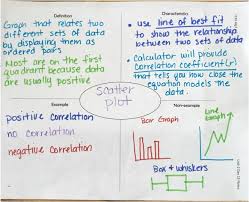 Definition
Graph that relates two
different sets of data
by displaying them as
ordered pairs
Most are on the first
quadrant because data
are usually positive
Characteristics
• use line of best fit
to show the relationship
between two sets of data
• Calculator will provide
Correlation coefficient (r)
that tells you how close
the equation models the
data.
scatter
plot
Example
positive correlation
no correlation
negative correlation
Non-example
Bar Graph
Line
Graph
Box & whiskers